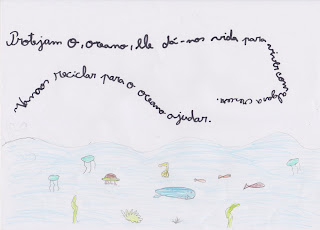 Protejam o, oceano, ele dá-nos vida para viver com
Vamos reciclar para o oceano ajudar.